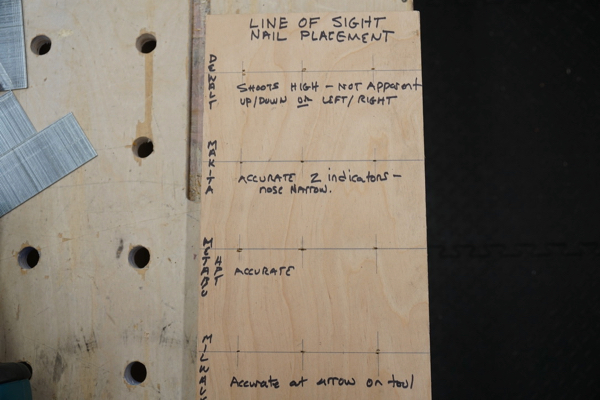 LINE OF SIGHT
NAIL PLACEMENT
DEWALT
SHOOTS HIGH - NOT APPARENT
UP/DOWN OR LEFT/RIGHT
MAKITA
ACCURATE 2 indicators -
NOSE NARROW.
METABO
HPT
ACCURATE
MILWAU
Accurate at arrow on tool